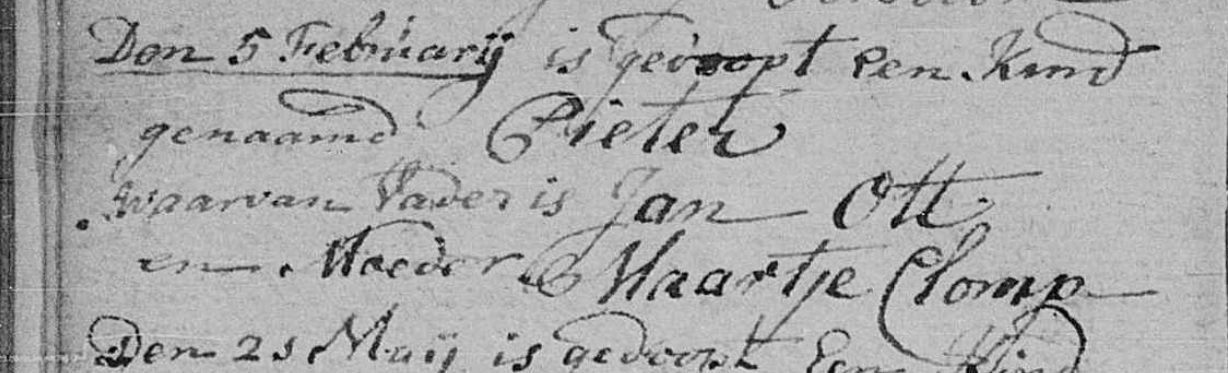 Den 5 Februarij is gedoopt een Kind
genaamd Pieter
waarvan Vader is Jan Ott
en Moeder Maartje Clomp
Den 21 Maij is gedoopt Een Kind